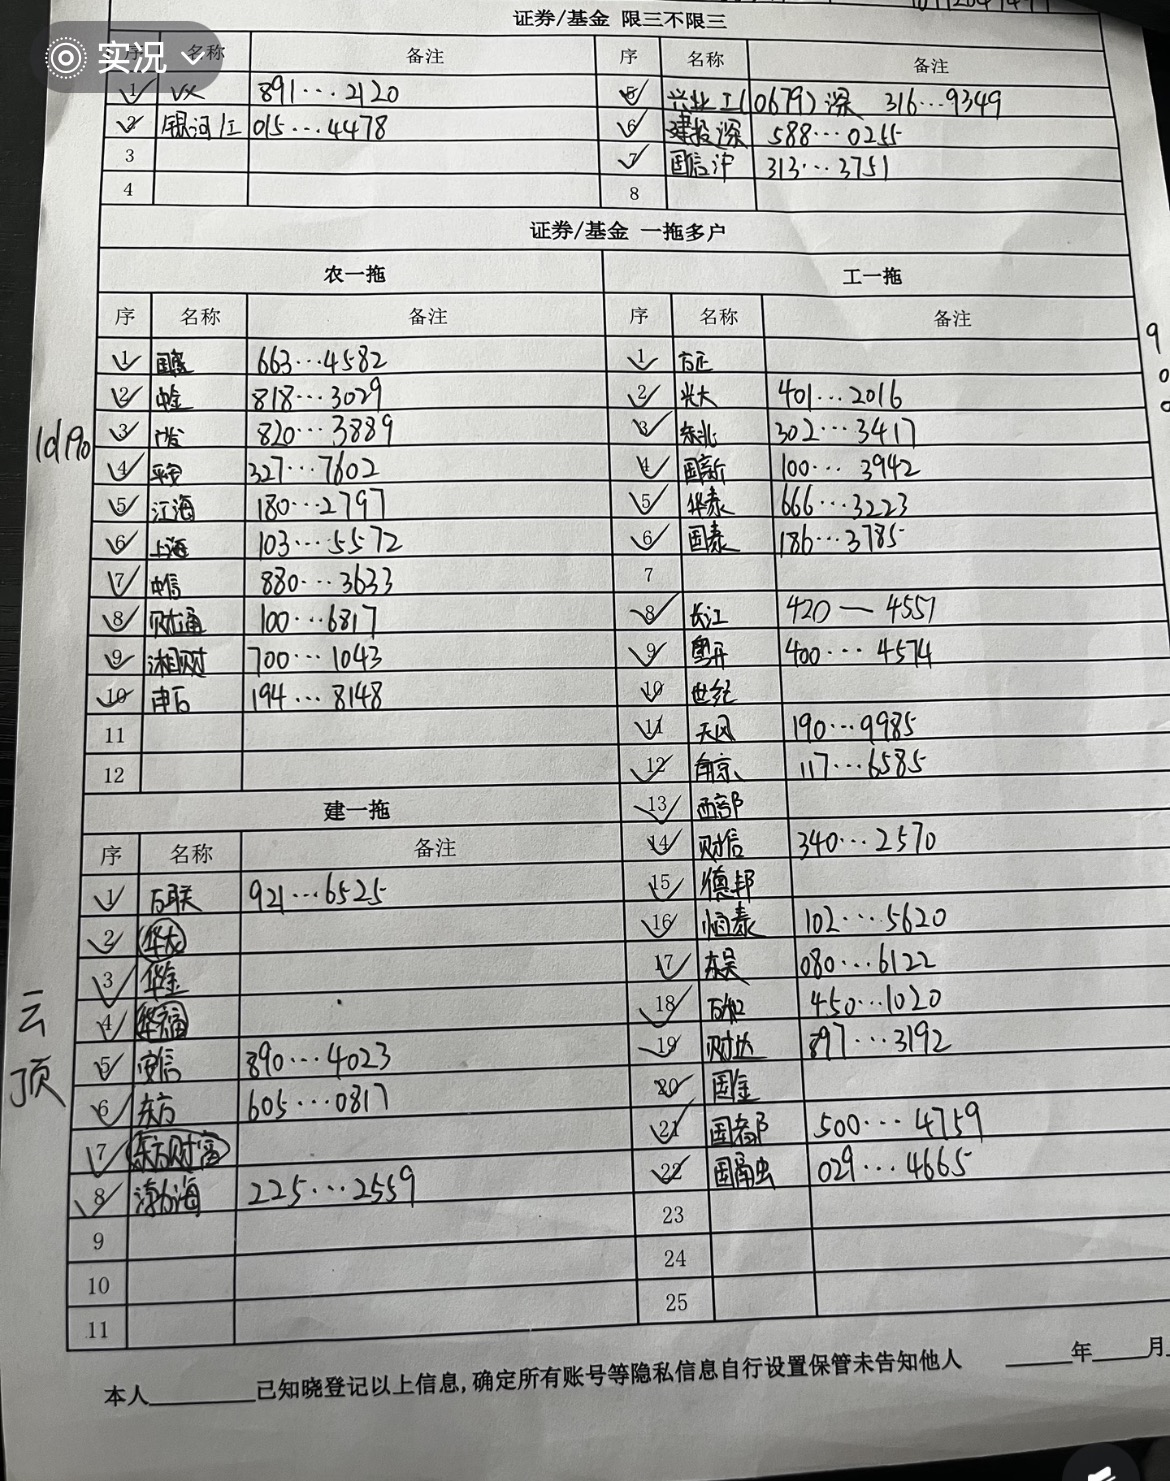 实况
证券/基金 限三不限三
序 名称 备注 序 名称 备注
1 VX 891···2120 5 兴业工(0679)深 316···9349
2 银河工 015···4478 6 建投深 588···0255
3 7 国信沪 313···3751
4 8
证券/基金 一拖多户
农一拖 工一拖
序 名称 备注 序 名称 备注
1 国盛 663···4582 1 方正
2 中金 818···3029 2 光大 401···2016
3 广发 820···3889 3 东北 302···3417
4 平安 327···7602 4 国新 100···3942
5 江海 180···2797 5 华泰 666···3223
6 上海 103···5572 6 国泰 186···3785
7 中信 880···3633 7
8 财通 100···6817 8 长江 420—4551
9 湘财 700···1043 9 粤开 400···4574
10 申万 194···8148 10 世纪
11 11 天风 190···9985
12 12 南京 117···6585
建一拖 13 西部
序 名称 备注 14 财信 340···2570
1 万联 921···6525 15 德邦
2 华龙 16 恒泰 102···5620
3 华金 17 东吴 080···6122
4 华福 18 万和 450···1020
5 安信 890···4023 19 财达 897···3192
6 东方 605···0817 20 国金
7 东方财富 21 国都 500···4759
8 渤海 225···2559 22 国融 029···4665
9 23
10 24
11 25
云顶
900
本人 已知晓登记以上信息,确定所有账号等隐私信息自行设置保管未告知他人 年 月